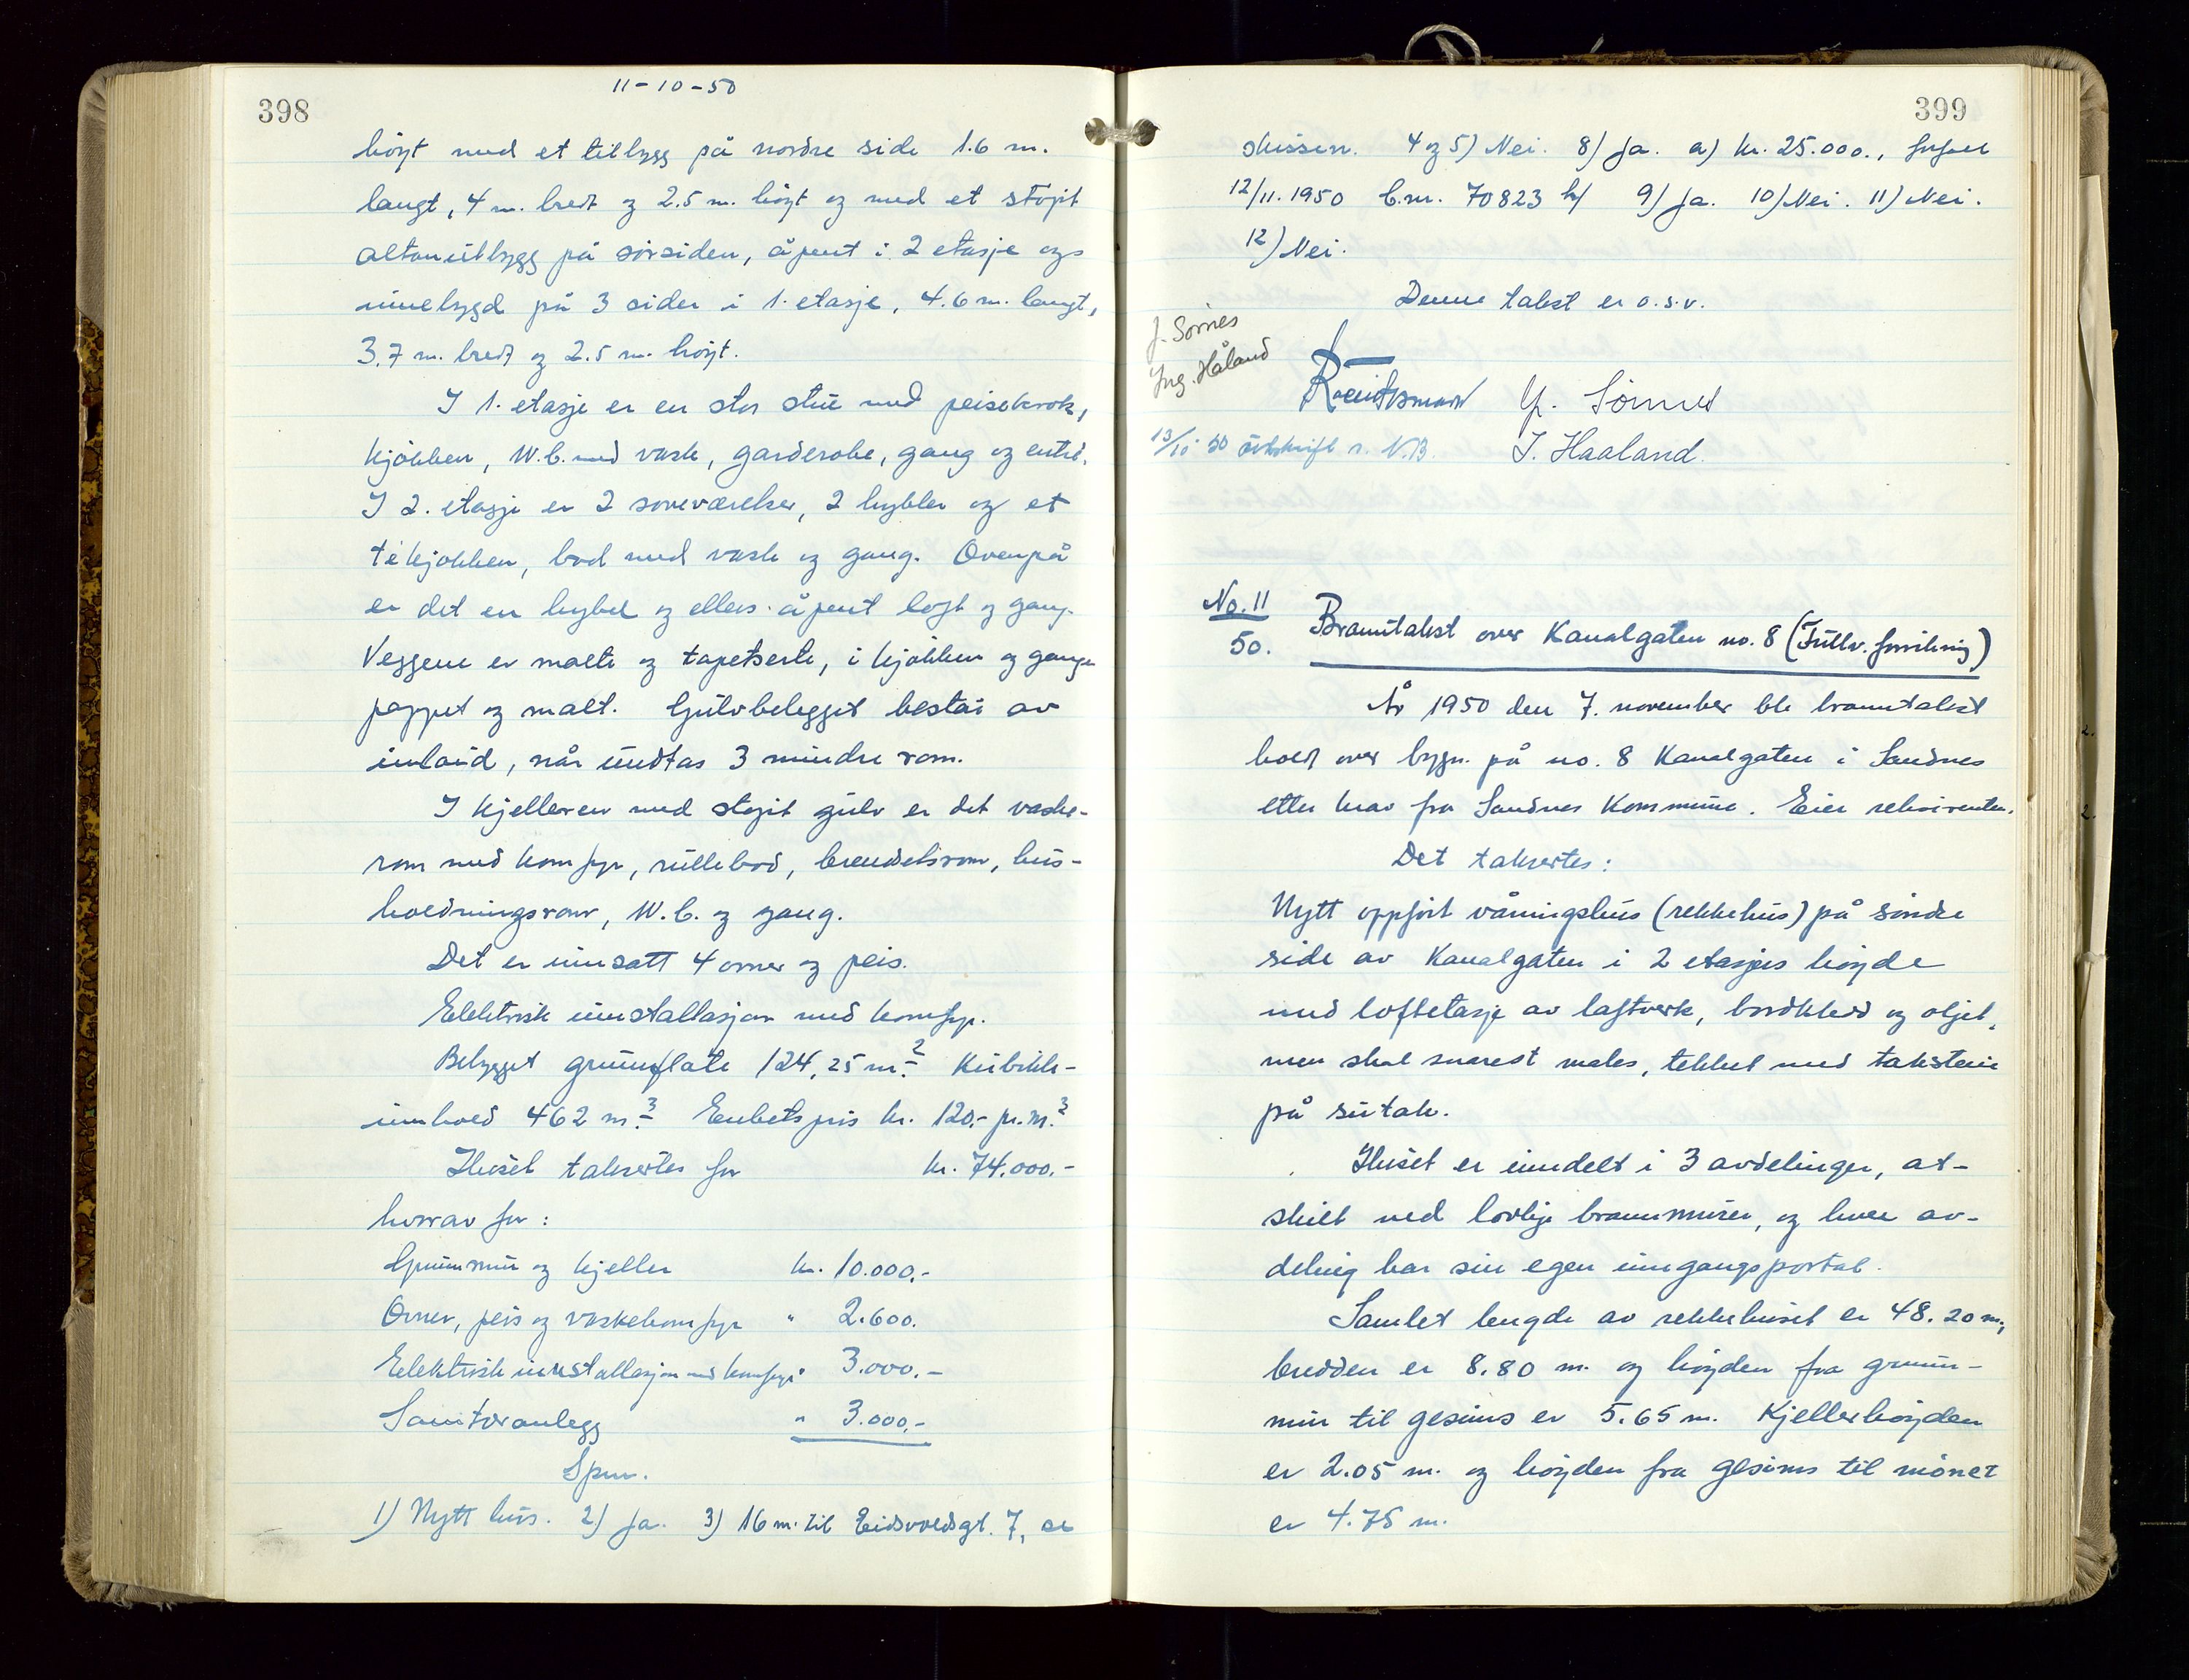 11-10-50
398
höyt med et tilbygg på nordre side 1.6 m.
langt, 4 m. bredt og 2.5 m. höyt og med et stöpt
altanutbygg på sörsiden, åpent i 2 etasje og
innebygd på 3 sider i 1. etasje, 4.6 m. langt,
3.7 m. bredt og 2.5 m. höyt.
I 1. etasje er en stor stue med peisekrok,
kjökken, W.C. med vask, garderobe, gang og entré.
I 2. etasje er 2 soveværelser, 2 hybler og et
tékjökken, bad med vask og gang. Ovenpå
er det en hybel og ellers åpent loft og gang.
Veggene er malte og tapetserte, i kjökken og gange
pappet og malt. Gulvbelegget består av
inlaid, når undtas 3 mindre rom.
I kjelleren med stöpt gulv er det vaske-
rom med komfyr, rullebod, brendselsrom, hus-
holdningsrom, W.C. og gang.
Det er innsatt 4 ovner og peis.
Elektrisk innstallasjon med komfyr.
Bebygget grunnflate 124,25 m.2 Kubikk-
innhold 462 m.3 Enhetspris kr. 120.- pr. m.3
Huset takseres for kr. 74.000.-
hvorav for:
Grunnmur og kjeller kr. 10.000.-
Ovner, peis og vaskekomfyr " 2.600.
Elektrisk innstallasjon med komfyr " 3.000.-
Sanitæranlegg " 3.000.-
Spm.
1) Nytt hus. 2) Ja. 3) 16 m. til Eidsvoldsgt. 7, se
399
skissen. 4 og 5) Nei. 8) Ja. a) kr. 25.000.,
12/11.1950 70823 9) Ja. 10) Nei. 11) Nei.
12) Nei.
Denne takst er o.s.v.
J. Sörnes
Ing. Håland
J. Sörnes
13/10 50 utskrift s. N.B. I. Haaland.
No. 11
50. Branntakst over Kanalgaten no. 8 (Fullv. forsikring)
År 1950 den 7. november ble branntakst
holdt over bygn. på no. 8 Kanalgaten i Sandnes
etter krav fra Sandnes Kommune. Eier rekvirenten.
Det takseres:
Nytt oppfört våningshus (rekkehus) på söndre
side av Kanalgaten i 2 etasjes höyde
med loftetasje av laftverk, bordkledd og oljet,
men skal snarest males, tekket med takstein
på sutak.
Huset er inndelt i 3 avdelinger, at-
skilt ved lovlige brannmurer, og hver av-
deling har sin egen inngangsportal.
Samlet lengde av rekkehuset er 48.20 m.,
bredden er 8.80 m. og höyden fra grunn-
mur til gesims er 5.65 m. Kjellerhöyden
er 2.05 m. og höyden fra gesims til mönet
er 4.75 m.